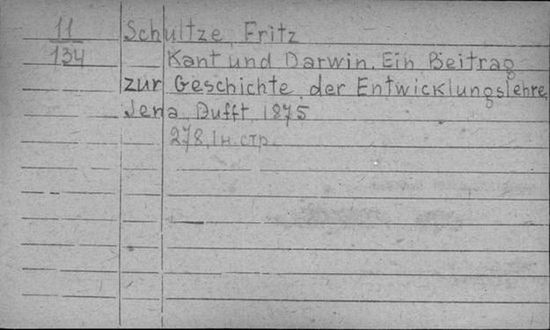 11
134
Schultze, Fritz
Kant und Darwin. Ein Beitrag
zur Geschichte der Entwicklungslehre
Jena, Dufft, 1875
278, 1 н. стр.